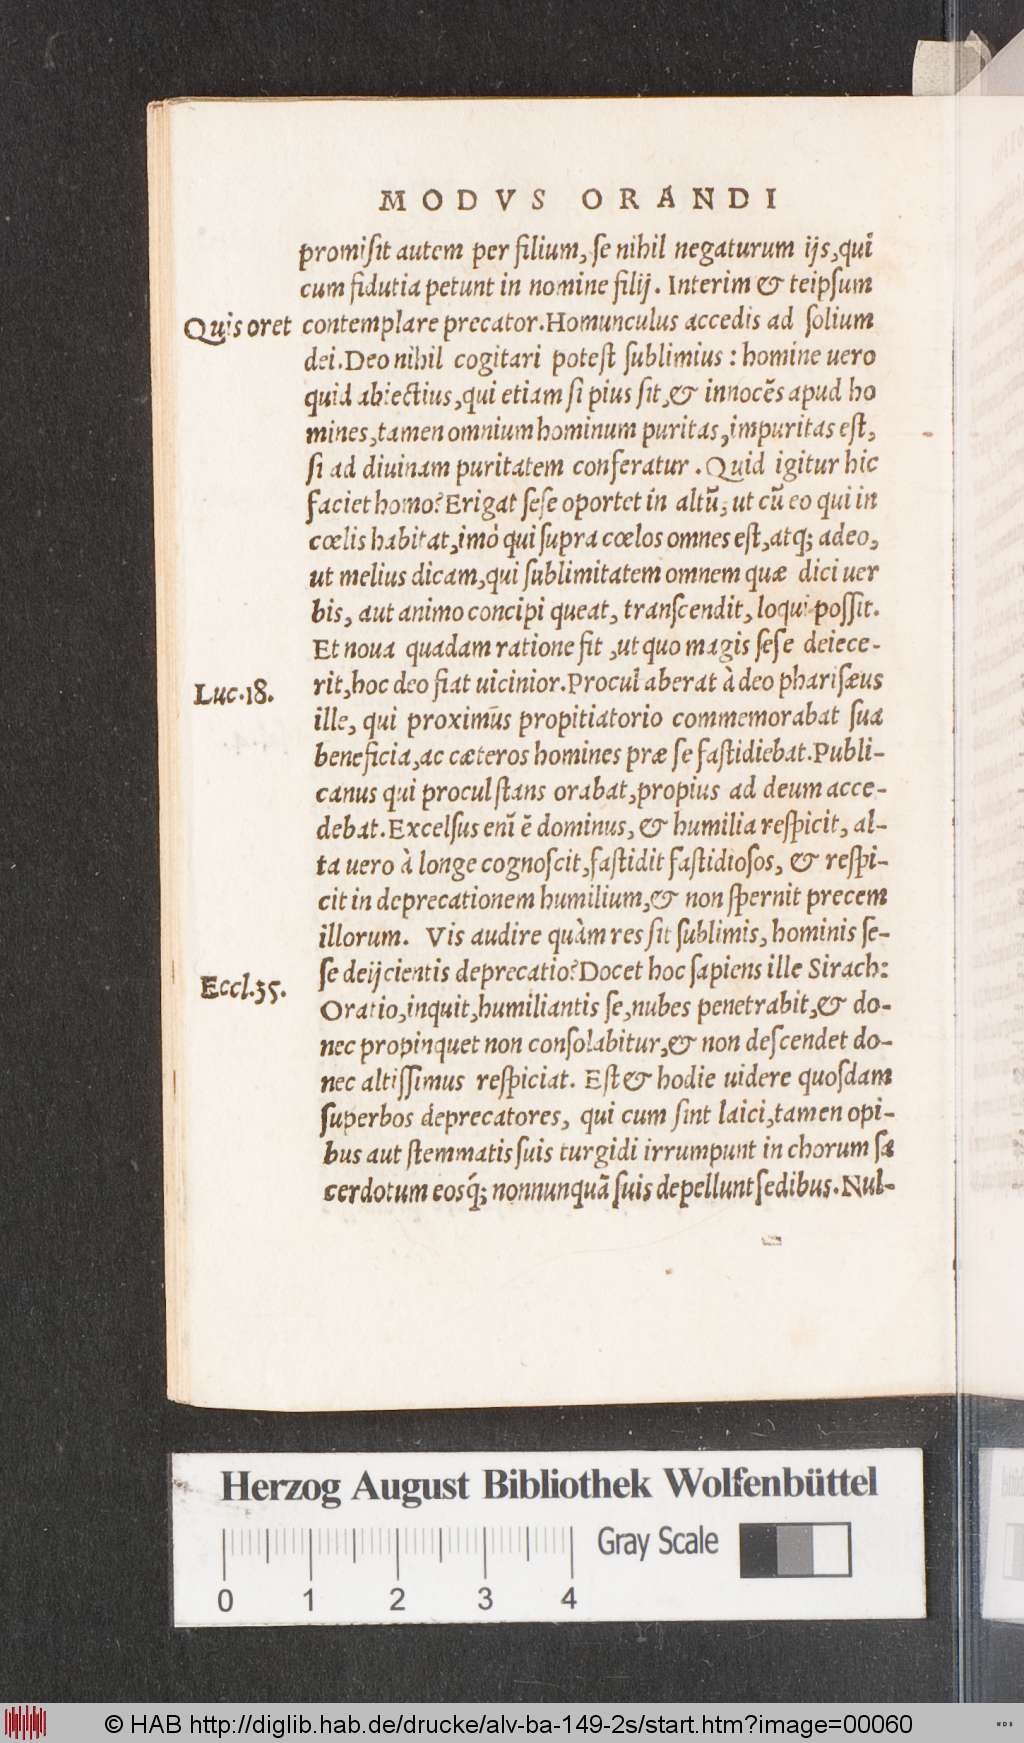 MODVS ORANDI
promiſit autem per filium, ſe nihil negaturum ijs, qui
cum fidutia petunt in nomine filij. Interim & teipſum
Quis oret
contemplare precator. Homunculus accedis ad ſolium
dei. Deo nihil cogitari poteſt ſublimius: homine uero
quid abiectius, qui etiam ſi pius ſit, & innocẽs apud ho
mines, tamen omnium hominum puritas, impuritas eſt,
ſi ad diuinam puritatem conferatur. Quid igitur hic
faciet homo? Erigat ſeſe oportet in altũ, ut cũ eo qui in
cœlis habitat, imò qui ſupra cœlos omnes eſt, atq; adeo,
ut melius dicam, qui ſublimitatem omnem quæ dici uer
bis, aut animo concipi queat, tranſcendit, loqui poſſit.
Et noua quadam ratione fit, ut quo magis ſeſe deiece-
Luc.18.
rit, hoc deo fiat uicinior. Procul aberat à deo phariſæus
ille, qui proximus propitiatorio commemorabat ſua
beneficia, ac cæteros homines præ ſe faſtidiebat. Publi-
canus qui procul ſtans orabat, propius ad deum acce-
debat. Excelſus enĩ ẽ dominus, & humilia reſpicit, al-
ta uero à longe cognoſcit, faſtidit faſtidioſos, & reſpi-
cit in deprecationem humilium, & non ſpernit precem
illorum. Vis audire quàm res ſit ſublimis, hominis ſe-
Eccl.35.
ſe deijcientis deprecatio? Docet hoc ſapiens ille Sirach:
Oratio, inquit, humiliantis ſe, nubes penetrabit, & do-
nec propinquet non conſolabitur, & non deſcendet do-
nec altiſſimus reſpiciat. Eſt & hodie uidere quoſdam
ſuperbos deprecatores, qui cum ſint laici, tamen opi-
bus aut ſtemmatis ſuis turgidi irrumpunt in chorum ſa
cerdotum eosq́; nonnunquã ſuis depellunt ſedibus. Nul-
Herzog August Bibliothek Wolfenbüttel
Gray Scale
0 1 2 3 4
© HAB http://diglib.hab.de/drucke/alv-ba-149-2s/start.htm?image=00060